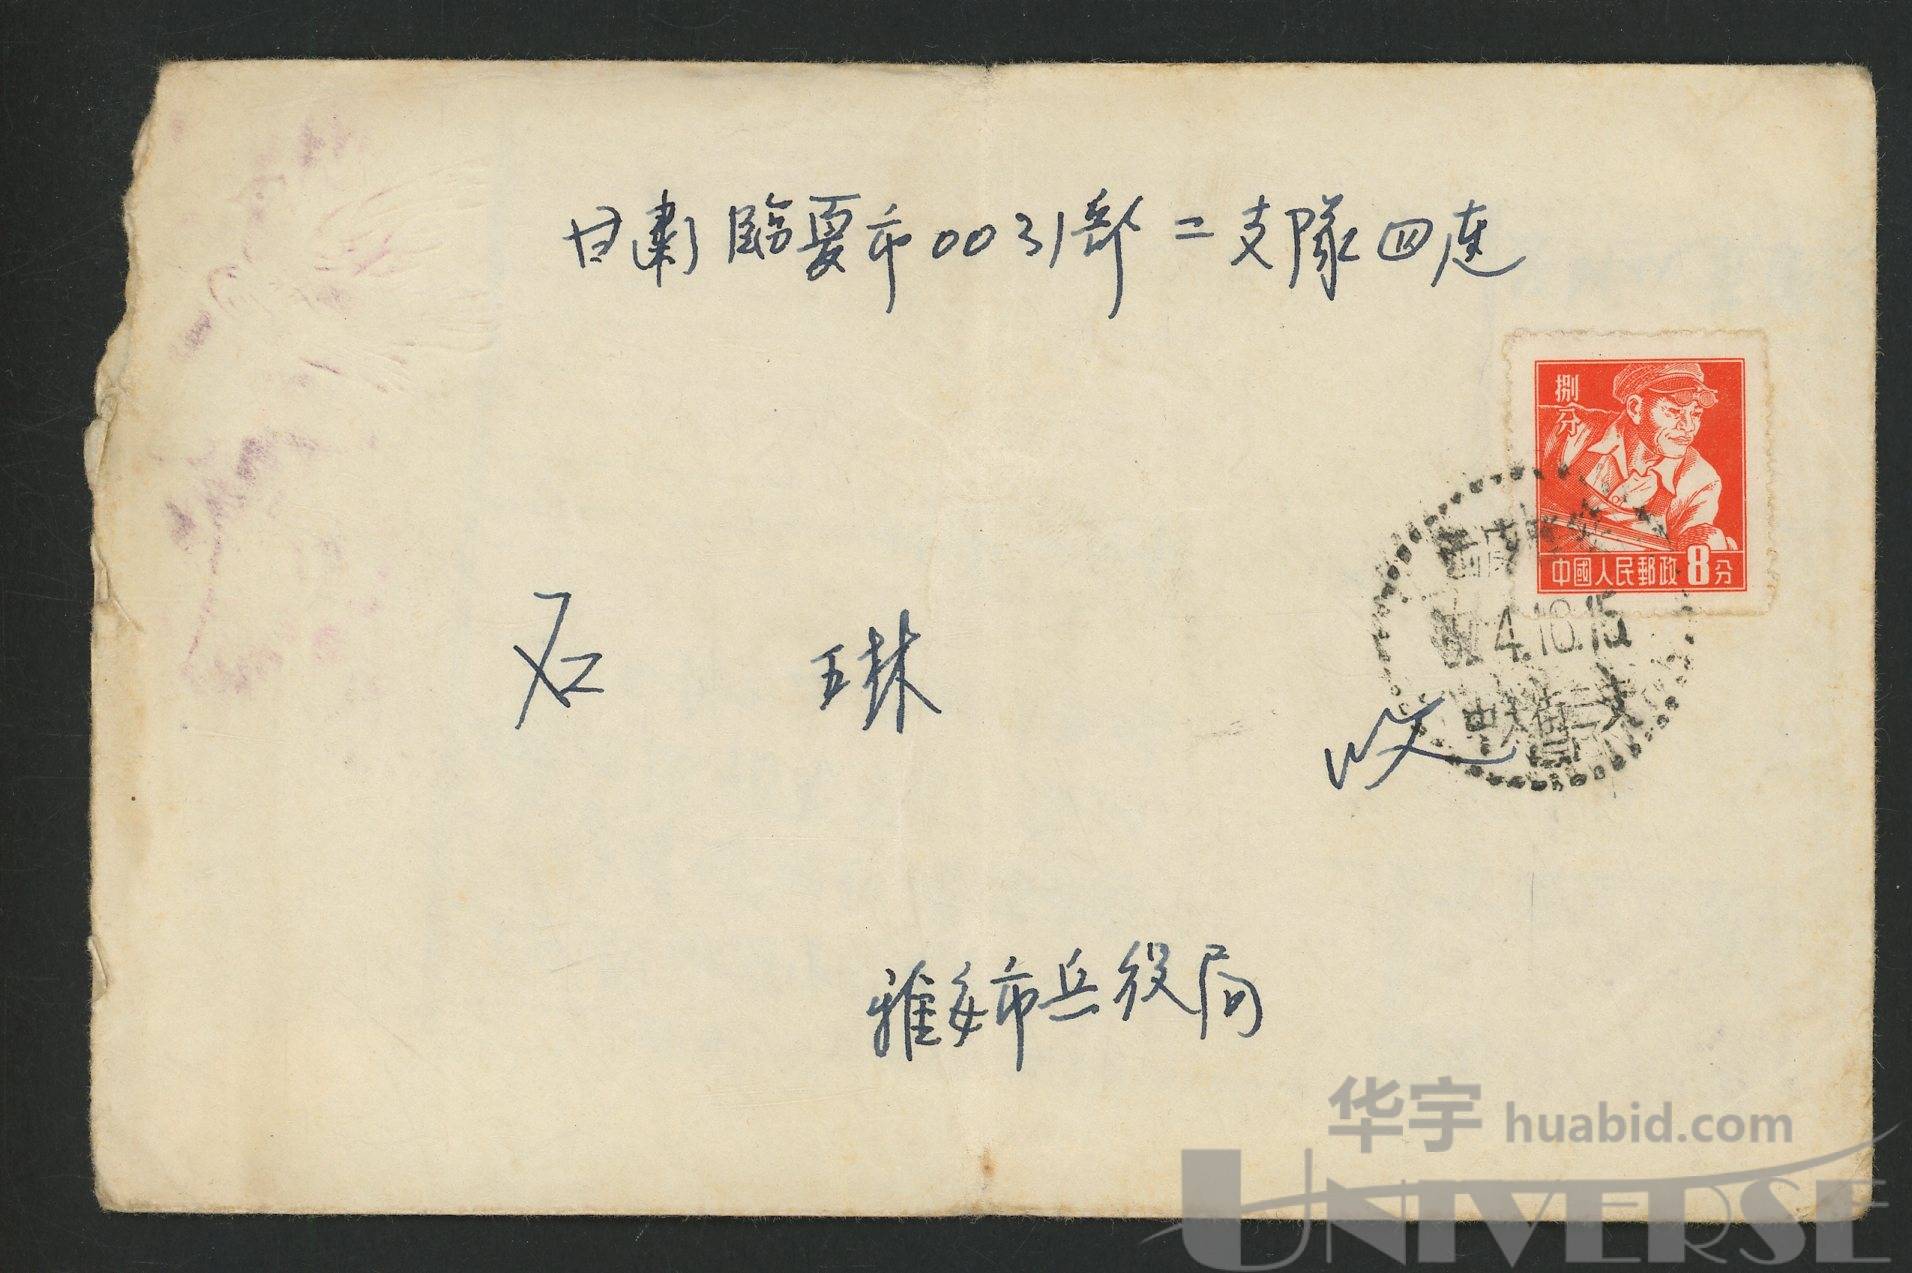 甘肃臨夏市0031部二支隊四连
捌分
中國人民郵政8分
4.10.15
石琳 收
雅安市兵役局
华宇 huabid.com
UNIVERSE